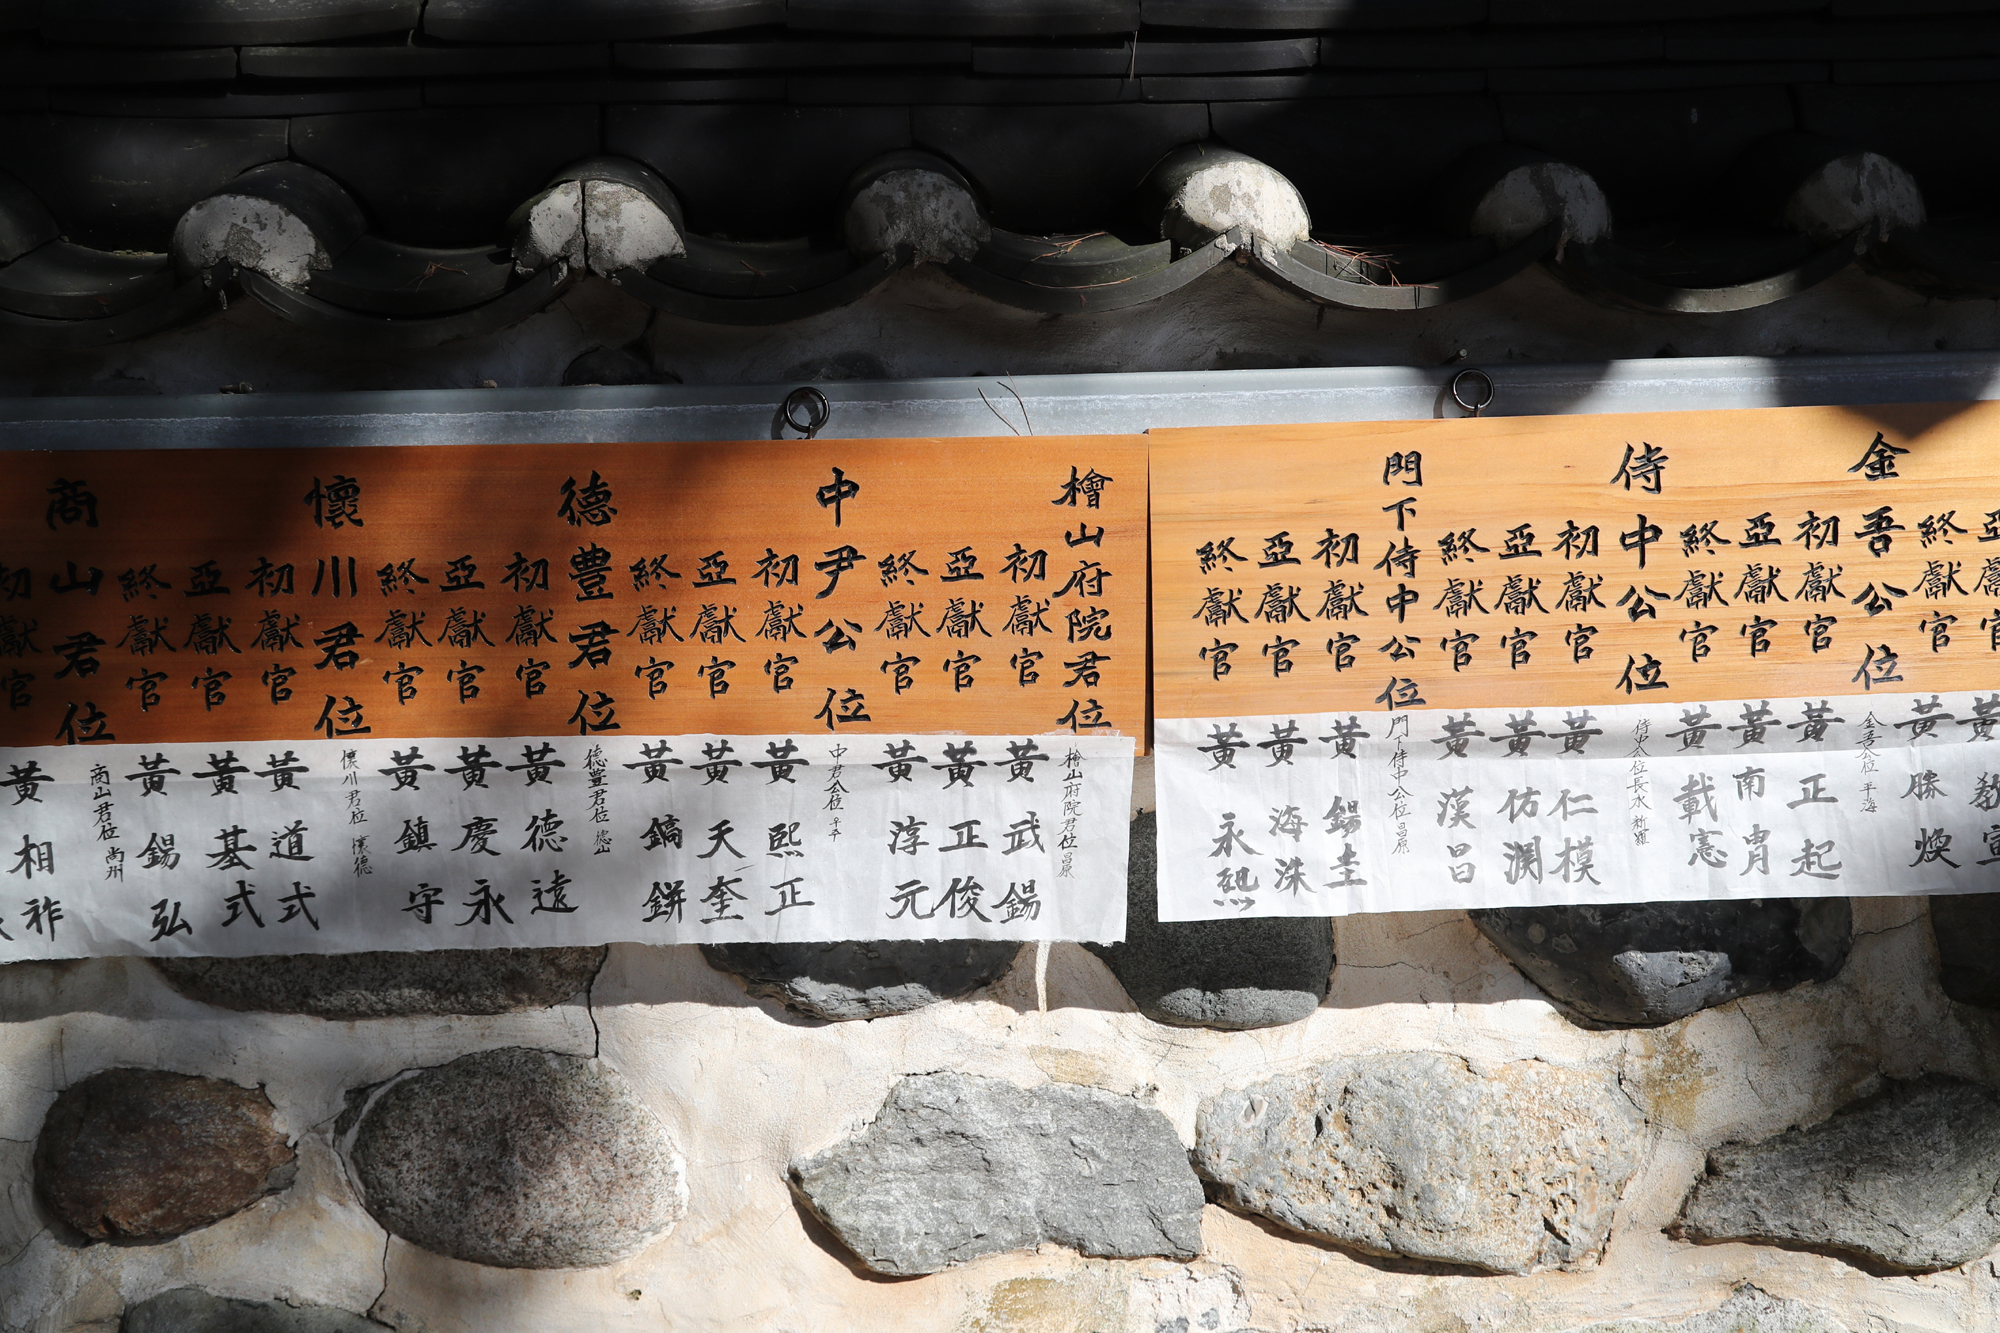 金吾公位
初獻官
亞獻官
終獻官
侍中公位
初獻官
亞獻官
終獻官
門下侍中公位
初獻官
亞獻官
終獻官
檜山府院君位
初獻官
亞獻官
終獻官
中尹公位
初獻官
亞獻官
終獻官
德豊君位
初獻官
亞獻官
終獻官
懷川君位
初獻官
亞獻官
終獻官
商山君位
初獻官
黃勝煥
金吾公位 平海
黃正起
黃南冑
黃載憲
侍中公位 長水
黃仁模
黃仿淵
黃漢昌
門下侍中公位 昌原
黃錫圭
黃海洙
黃永熙
檜山府院君位 昌原
黃武錫
黃正俊
黃淳元
中君公位
黃熙正
黃天奎
黃鎬餠
德豊君位 德山
黃德遠
黃慶永
黃鎮守
懷川君位 懷德
黃道式
黃基式
黃錫弘
商山君位 尚州
黃相祚